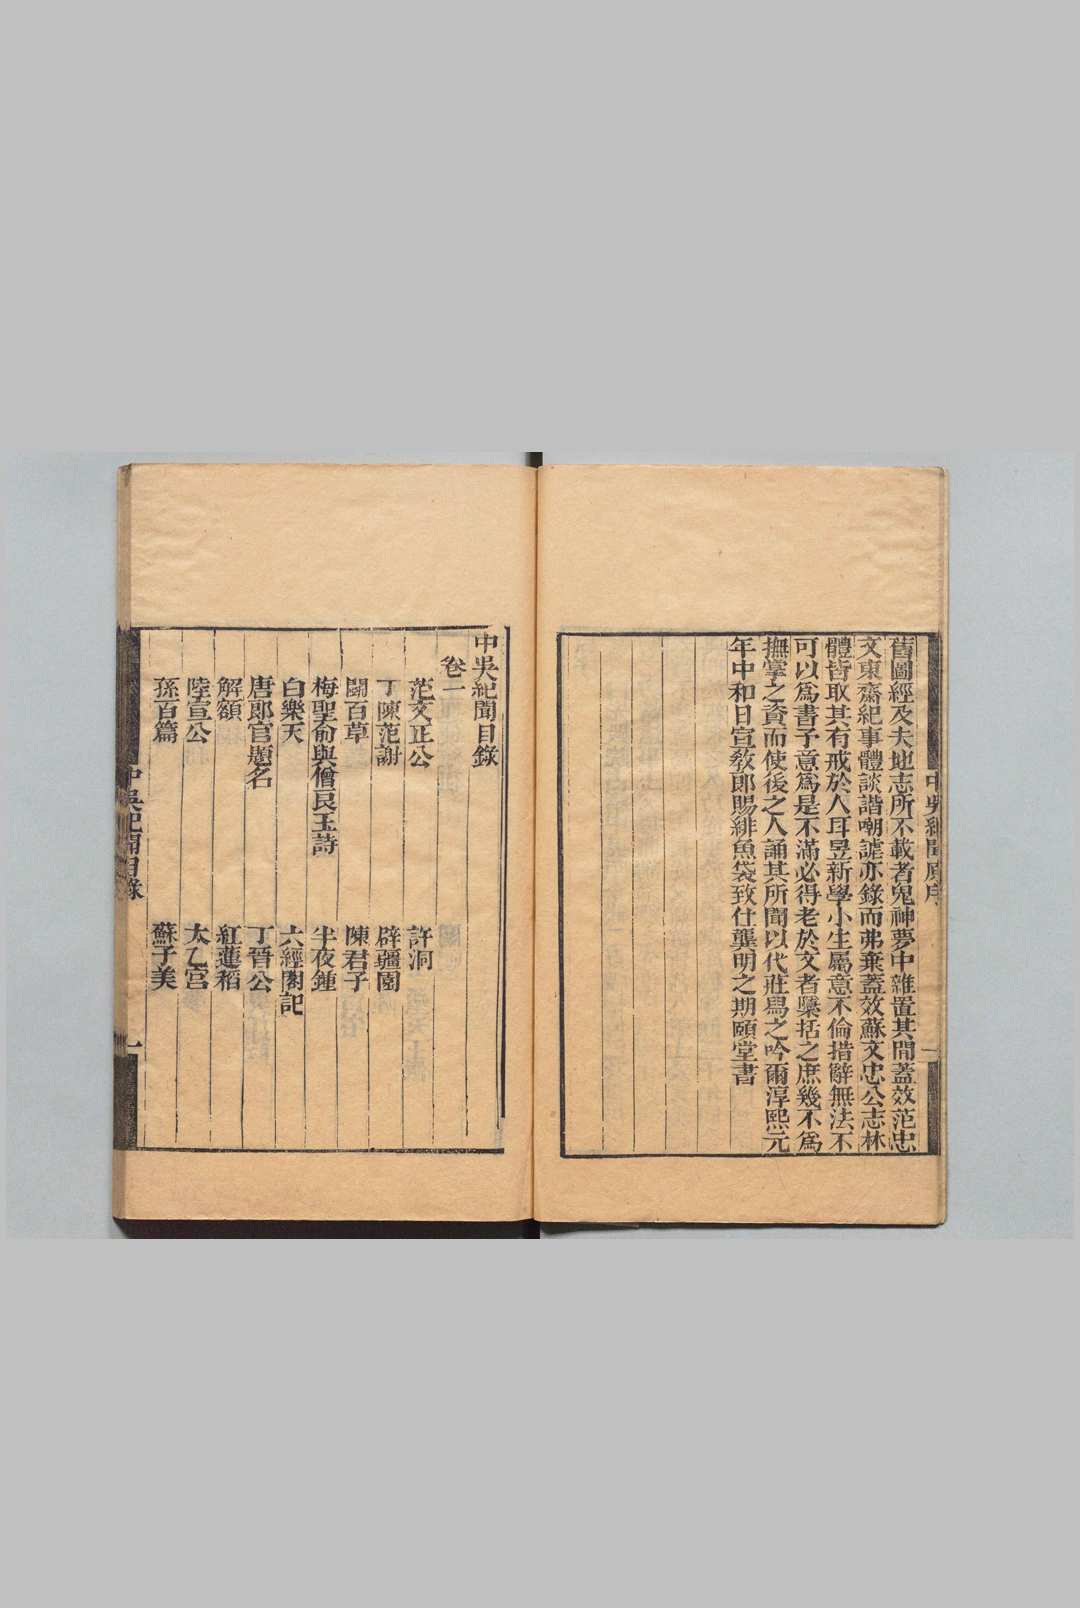 舊圖經及夫地志所不載者鬼神夢中雜置其閒蓋效范忠
文東齋紀事體談諧嘲謔亦錄而弗棄蓋效蘇文忠公志林
體皆取其有戒於人耳昱新學小生屬意不倫措辭無法不
可以爲書予意爲是不滿必得老於文者櫽括之庶幾不爲
撫掌之資而使後之人誦其所聞以代莊舄之吟爾淳熙元
年中和日宣敎郎賜緋魚袋致仕龔明之期頤堂書
中吳紀聞目錄
卷一
范文正公 許洞
丁陳范謝 辟疆園
鬭百草 陳君子
梅聖俞與僧良玉詩 半夜鍾
白樂天 六經閣記
唐郎官題名 丁晉公
解額 紅蓮稻
陸宣公 太乙宮
孫百篇 蘇子美
中吳紀聞目錄 一